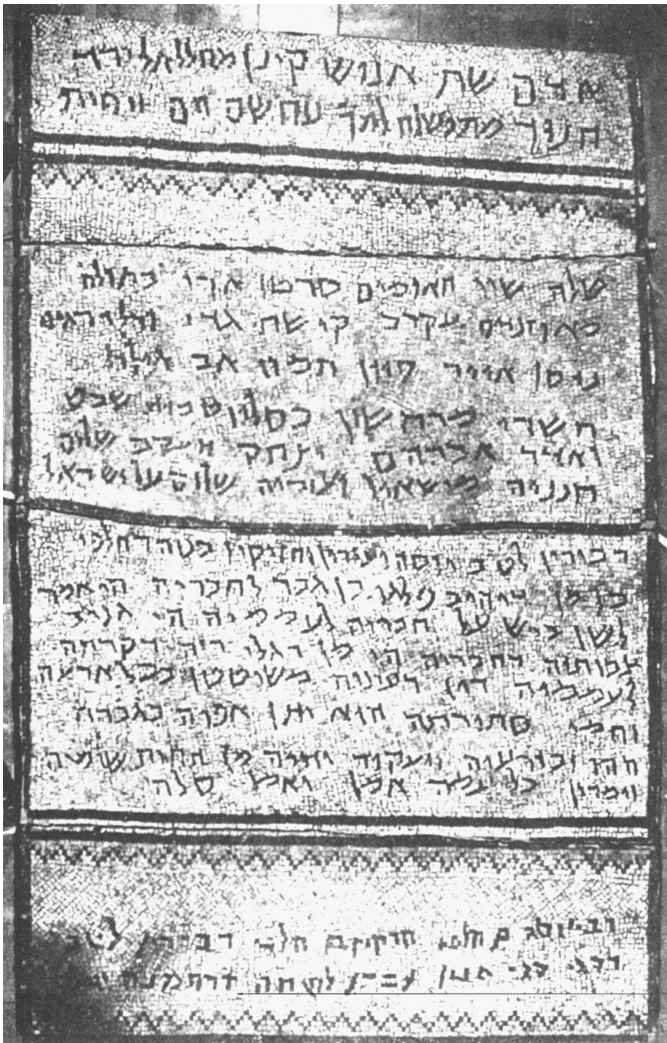 אדם שת אנוש קינן מהללאל ירד
חנוך מתושלח למך נוח שם חם ויפת
טלה שור תאומים סרטן ארי בתולה
מאוזניים עקרב קשת גדי ודלי דגים
ניסן אייר סיון תמוז אב אילול
תשרי מרחשון כסליו טבית שבט
ואדר אברהם יצחק ויעקב שלום
חנניה מישאיל ועזריה שלום על ישראל
דכירין לטב יוסה ועזרון וחזיקיו בנוה דחלפי
כל מן דיהיב פלגו בן גבר לחבריה הי אמר
לשן ביש על חבריה לעממיה הי גניב
צבותיה דחבריה הי מן דגלי רזה דקרתה
לעממיה דין דעינוה משוטטן בכל ארעה
וחמי סתירתה הוא יתן אפוה בגברה
ההו ובזרעיה ויעקור יתיה מן תחות שומיה
וימרון כל עמה אמן ואמן סלה
רבי יוסה בן חלפי חזקיו בן חלפי דכירין לטב
דסגי סגי הנון עבדו לשמה דרחמנה